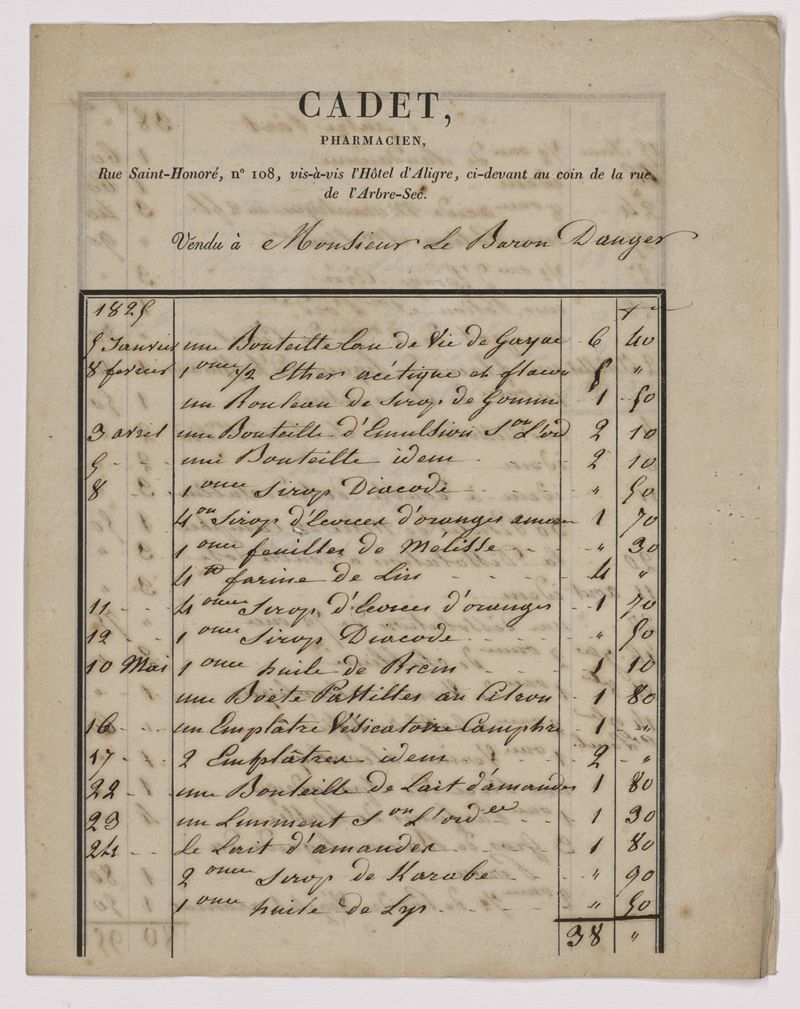 CADET,
PHARMACIEN,
Rue Saint-Honoré, nº 108, vis-à-vis l'Hôtel d'Aligre, ci-devant au coin de la rue
de l'Arbre-Sec.
Vendu à Monsieur Le Baron Dauger
1825
5 Janvier une Bouteille Eau de Vie de Gayac 6 40
8 fevrier 1 once 1/2 Ether acétique et flacon 5 "
un Rouleau de Sirop de Gomme 1 50
3 avril une Bouteille d'Emulsion Son L'ord 2 10
5 - - une Bouteille idem 2 10
8 - - 1 once Sirop Diacode " 50
4 on Sirop d'Ecorces d'oranges amer 1 70
1 once feuilles de Mélisse " 30
4 farine de Lin 4 "
11 - - 4 once Sirop d'Ecorces d'oranges 1 70
12 - - 1 once Sirop Diacode " 50
10 Mai 1 once huile de Ricin 1 10
une Boëte Pastilles au Citron 1 80
16 - - un Emplâtre Vésicatoire Camphre 1 "
17 - - 2 Emplâtres idem 2 "
22 - - une Bouteille de Lait d'amandes 1 80
23 un Liniment Son L'ordce 1 30
24 - - Le Lait d'amandes 1 80
2 once Sirop de Karabe " 90
1 once huile de Lys " 50
38 "